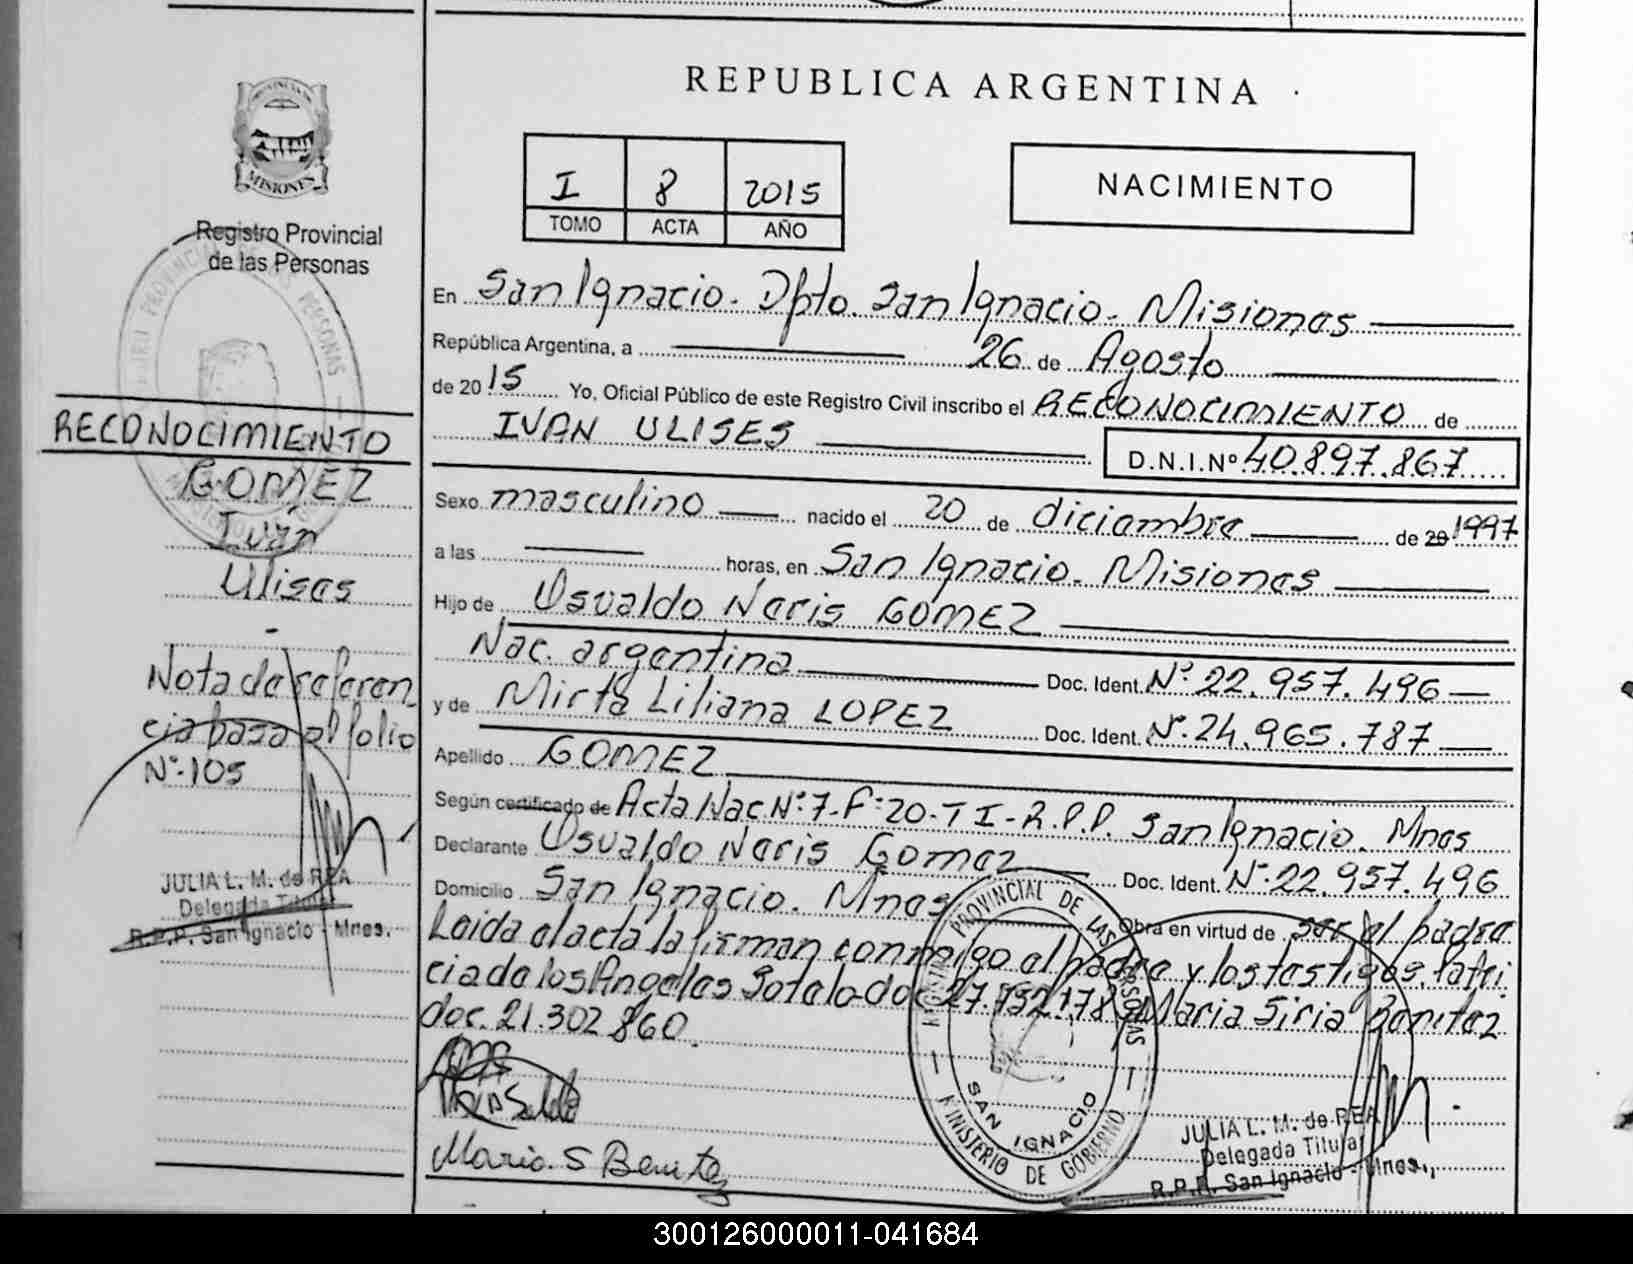 REPUBLICA ARGENTINA
I 8 2015
TOMO ACTA AÑO
NACIMIENTO
MISIONES
Registro Provincial
de las Personas
RECONOCIMIENTO
GOMEZ
Iván
Ulises
Nota de referen
cia pasa al folio
Nº-105
JULIA L. M. de REA
Delegada Titular
R.P.P. San Ignacio - Mnes.
En San Ignacio. Dpto. San Ignacio. Misiones
República Argentina, a 26 de Agosto
de 2015 Yo, Oficial Público de este Registro Civil inscribo el RECONOCIMIENTO de
IVAN ULISES D.N.I.Nº 40.897.867
Sexo masculino nacido el 20 de diciembre de 20 1997
a las horas, en San Ignacio. Misiones
Hijo de Osvaldo Neris GOMEZ
Nac. argentina Doc. Ident. Nº 22.957.496
y de Mirta Liliana LOPEZ Doc. Ident. Nº 24.965.787
Apellido GOMEZ
Según certificado de Acta Nac Nº 7-F:20-T I-R.P.P. San Ignacio. Mnes
Declarante Osvaldo Neris Gomez Doc. Ident. Nº 22.957.496
Domicilio San Ignacio. Mnes Obra en virtud de ser el padre
Leida el acta la firman conmigo el padre y los testigos. Patri
cia de los Angeles Sotelo doc 27.732.178 Maria Siria Benitez
doc. 21.302.860.
Maria S Benitez
REGISTRO PROVINCIAL DE LAS PERSONAS
SAN IGNACIO
MINISTERIO DE GOBIERNO
JULIA L. M. de REA
Delegada Titular
R.P.P. San Ignacio - Mnes.
300126000011-041684